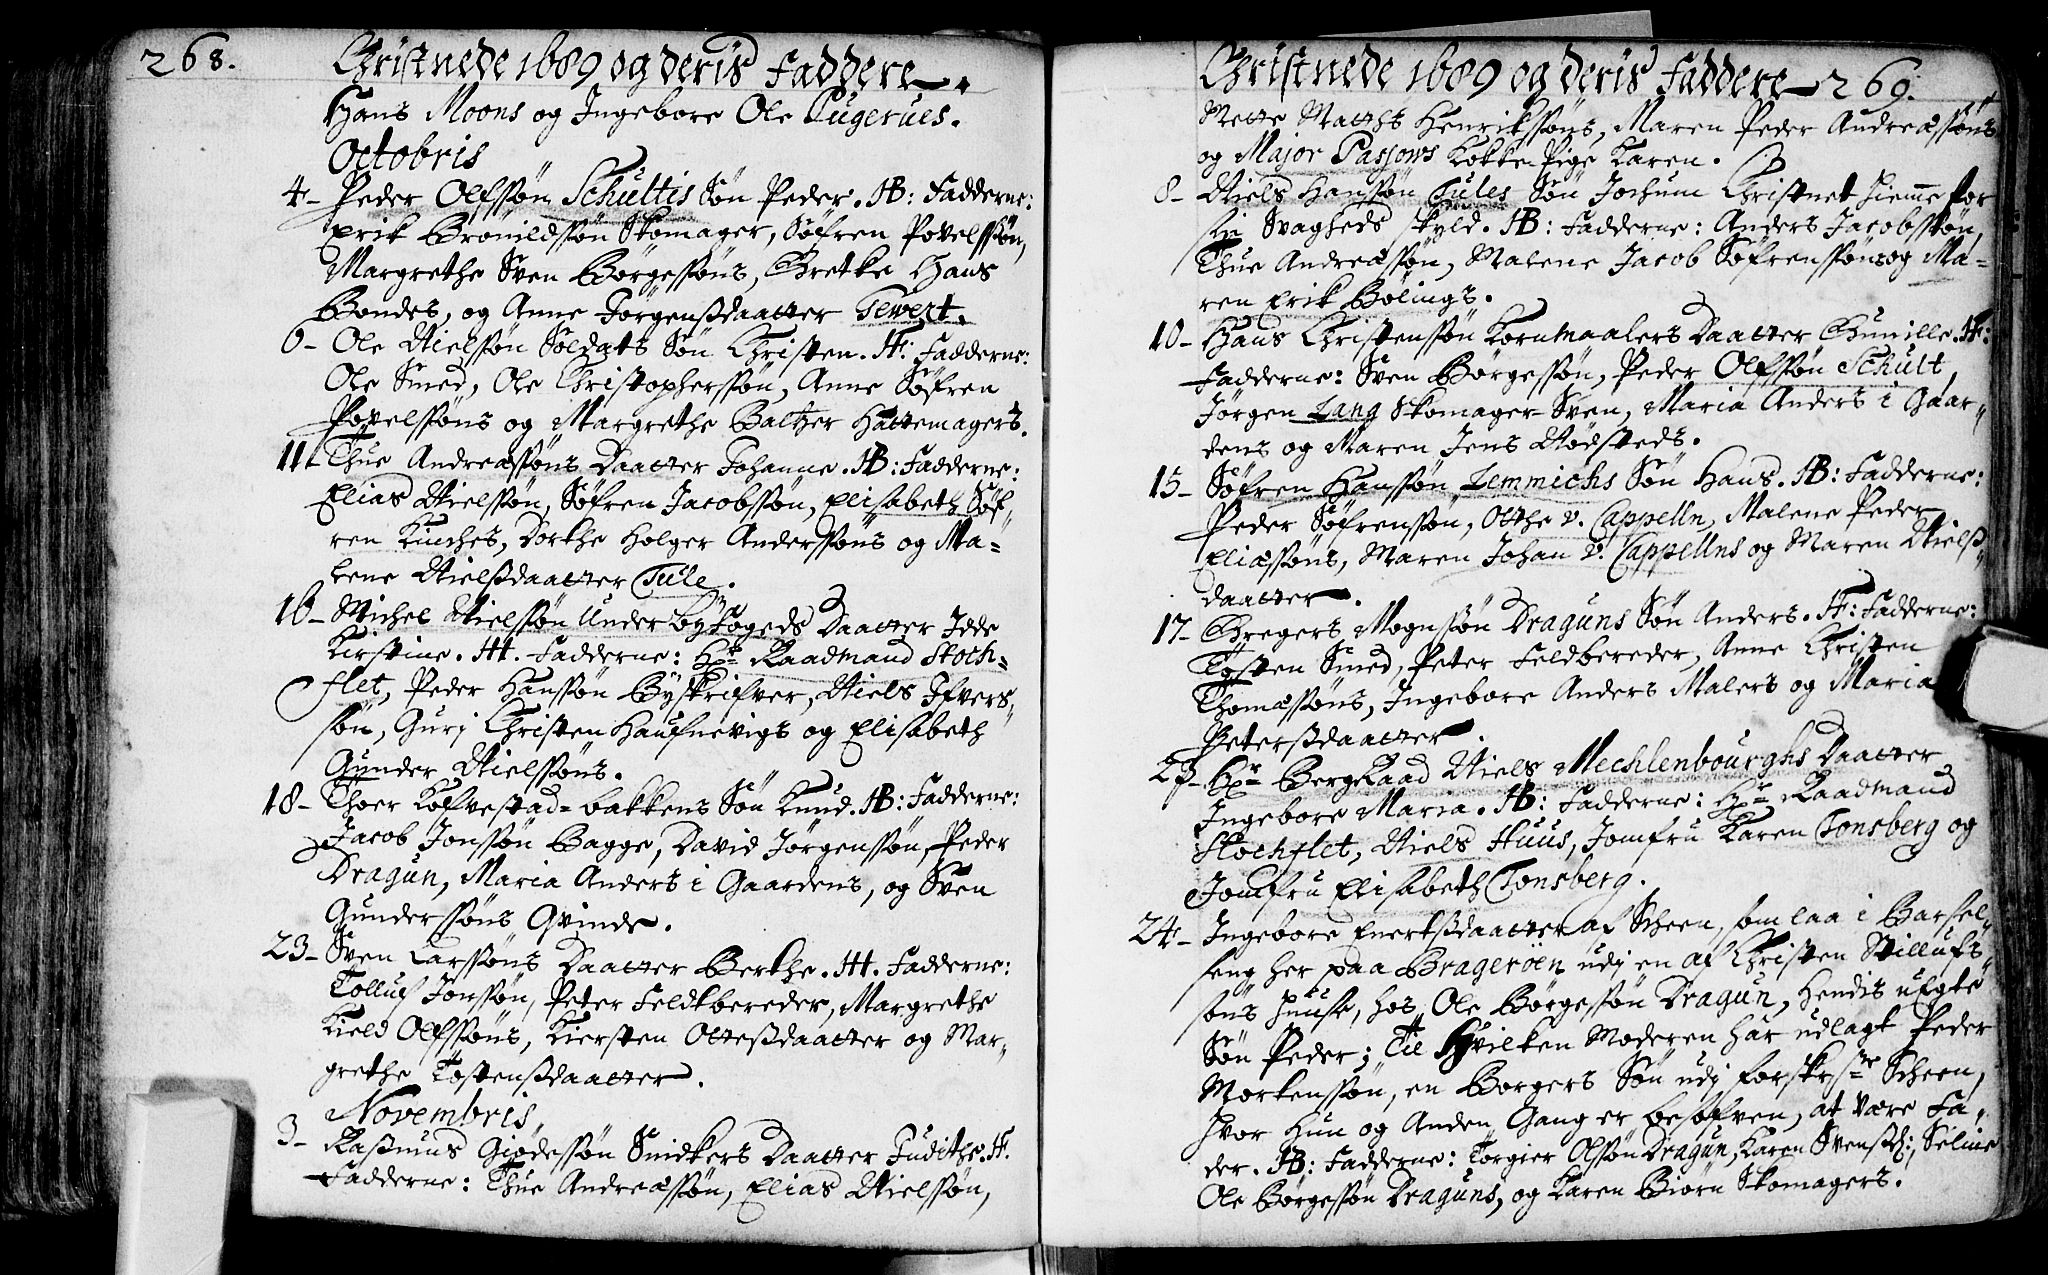 268.
Christnede 1689 og deris Faddere.
Hans Moons og Ingebore Ole Pugerues.
Octobris
4- Peder Olfssøn Schultis Søn Peder. HB: Fadderne:
Erik Brønildssøn Skomager, Søfren Povelssøn,
Margrethe Sven Børgessøns, Gretke Hans
Bondes, og Anne Jørgenssdaatter Tewert.
6- Ole Nielssøn Soldats Søn Christen. H: Fadderne:
Ole Smed, Ole Christopherssøn, Anne Søfren
Povelssøns og Margrethe Baltzer Hattemagers.
11- Thue Andreæssøns Daatter Johanne. HB: Fadderne:
Elias Nielssøn, Søfren Jacobssøn, Elisabeth Søf-
ren Kusches, Dorthe Holger Anderssøns og Ma-
lene Nielssdaatter Tule.
16- Michel Nielssøn Underbyfogeds Daatter Idde
Kirstine. HH. Fadderne: Hr Raadmand Stoch-
flet, Peder Hanssøn Byskrifver, Niels Ifvers-
søn, Gurj Christen Haufnevigs og Elisabeth
Gunder Nielssøns.
18- Thoer Kolfvestad-bakkens Søn Knud. HB: Fadderne:
Jacob Jonssøn Bagge, David Jørgenssøn, Peder
Dragun, Maria Anders i Gaardens, og Sven
Gunderssøns Qvinde.
23- Sven Larssøns Daatter Berthe. HH. Fadderne:
Tolluf Jonssøn, Peter Feldtbereder, Margrethe
Kield Olfssøns, Kiersten Ottessdaatter og Mar-
grethe Tostenssdaatter.
Novembris
3- Rassmus Giødessøn Snidkers Daatter Judithe. H.
Fadderne: Thue Andreæssøn, Elias Nielssøn,
Christnede 1689 og deris Faddere 269.
Mette Matths Henrikssøns, Maren Peder Andreæssøns
og Major Passows Kokke Pige Karen.
8- Niels Hanssøn Tules Søn Jochum Christnet hiemme for
sin Svagheds skyld. HB: Fadderne: Anders Jacobssøn,
Thue Andreæssøn, Malene Jacob Søfrenssøns og Ma-
ren Erik Bølings.
10- Hans Christenssøn Kornmaalers Daatter Gunille. H:
Fadderne: Sven Børgessøn, Peder Olfssøn Schult,
Jørgen Lang Skomager-Sven, Maria Anders i Gaar-
dens og Maren Jens Nødsteds.
15- Søfren Hanssøn Lemmichs Søn Hans. HB: Fadderne:
Peder Søfrenssøn, Otthe v. Cappelln, Malene Peder
Eliæssøns, Maren Johan v. Cappellns og Maren Nielss-
daatter.
17- Gregers Mognssøn Draguns Søn Anders. H: Fadderne:
Tosten Smed, Peter Feldbereder, Anne Christen
Thomæssøns, Ingebore Anders Malers og Maria
Peterssdaatter.
23- Hr BergRaad Niels Mechlenbourghs Daatter
Ingebore Maria. HB: Fadderne: Hr Raadmand
Stochflet, Niels Huus, Jomfru Karen Tonsberg og
Jomfru Elisabeth Tonsberg.
24- Ingebore Evertssdaatter af Scheen, som laa i Barsel-
seng her paa Bragerøen udj en af Christen Stillufs-
søns Huuse, hos Ole Børgessøn Dragun, hendis uegte
Søn Peder; Til Hvilken Moderen har udlagt Peder
Mortenssøn, en Borgers Søn udj forskrefne Scheen,
hvor hun og Anden Gang er besofven, at være Fa-
der. HB: Fadderne: Torgier Olssøn Dragun, Karen Svenssd:, Seline
Ole Børgessøn Draguns, og Karen Biørn Skomagers.